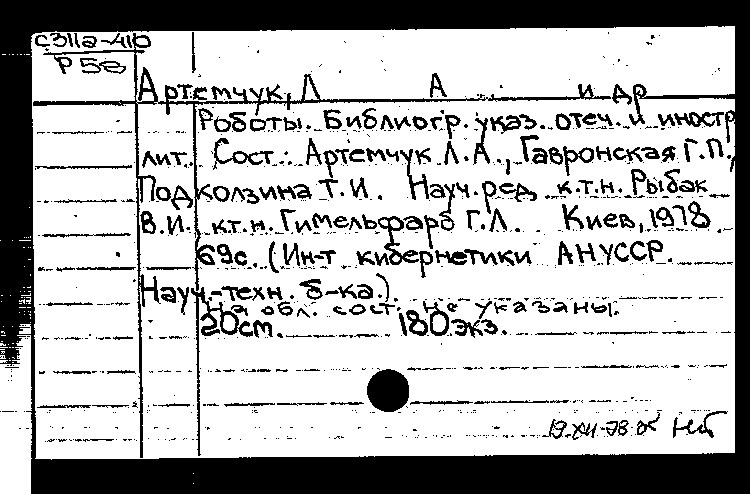 С311а-410
Р58
Артемчук, Л А и др
Роботы. Библиогр. указ. отеч. и иностр
лит. Сост.: Артемчук Л.А., Гавронская Г.П.,
Подколзина Т.И. Науч.ред. к.т.н. Рыбак
В.И., к.т.н. Гимельфарб Г.Л. Киев, 1978
69с. (Ин-т кибернетики АНУССР.
Науч.-техн. б-ка.).
На обл. сост. не указаны.
20см. 180экз.
19.XII-78